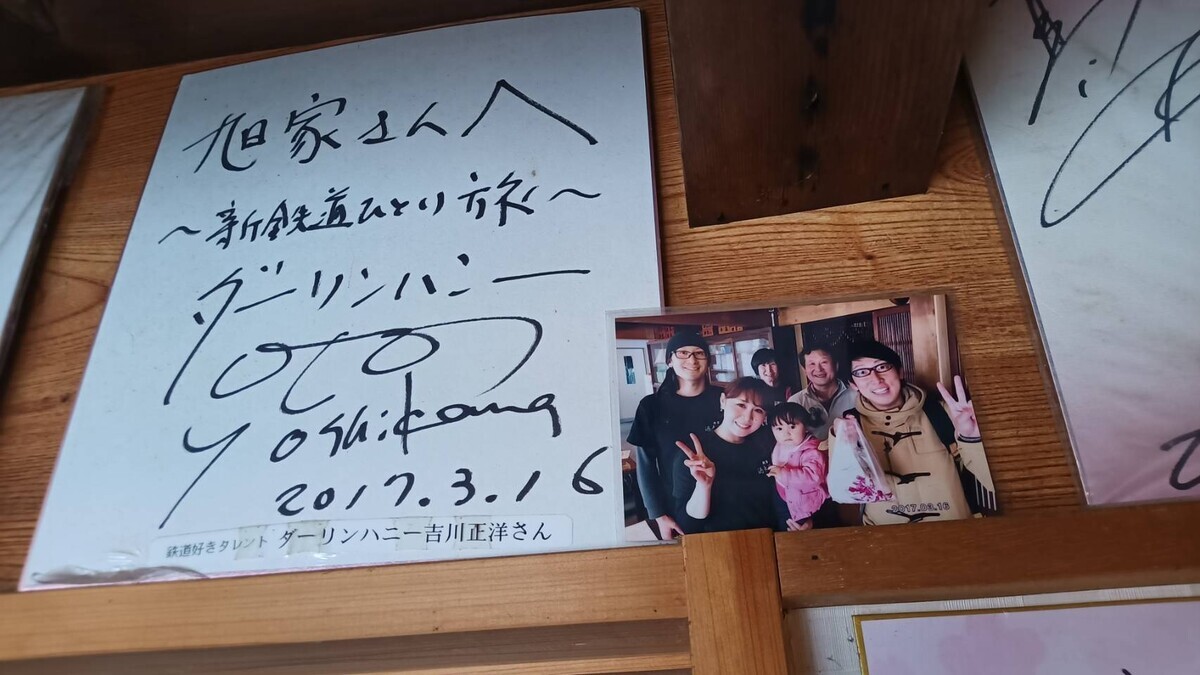 旭家さんへ
～新鉄道ひとり旅～
ダーリンハニー
Yoshikawa
2017.3.16
鉄道好きタレント ダーリンハニー吉川正洋さん
2017.03.16